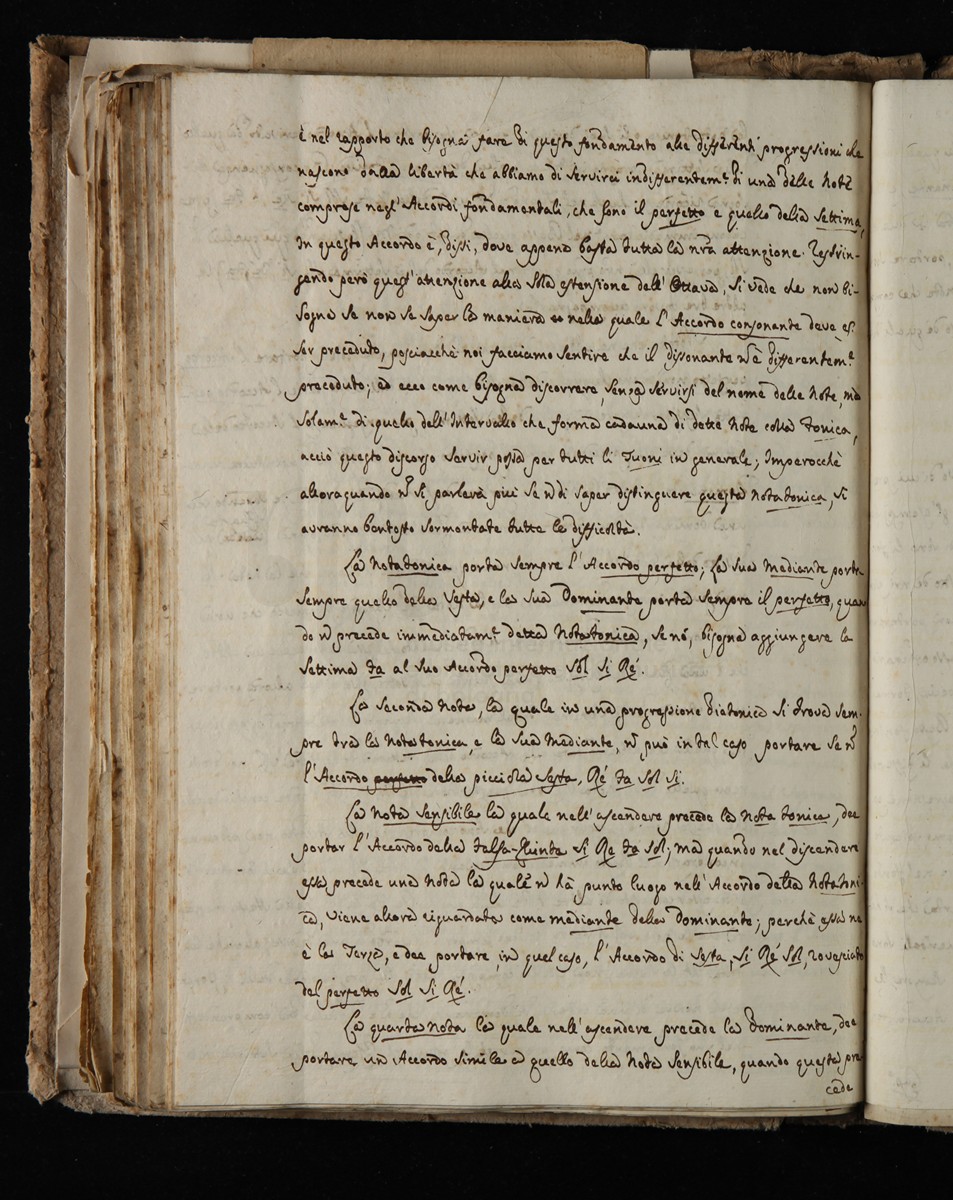 è nel rapporto che bisogna fare di questo fondamento alle differenti progressioni che
nascono dalla libertà che abbiamo di servirci indifferentem.e di una delle Note
comprese negl'Accordi fondamentali, che sono il perfetto e quello della Settima,
In questo Accordo è, dissi, dove appena basta tutta la nra attenzione. Restrin-
gendo però quest'attenzione alla sola estensione dell'Ottava, si vede che non bi-
sogna se non se saper la maniera nella quale l'Accordo consonante deve es-
ser preceduto, posciacchè noi facciamo sentire che il dissonante n'è differentem.e
preceduto; ed ecco come bisogna discorrere, senza servirsi del nome delle Note, ma
solam.e di quello dell'Intervallo che forma cadauna di dette Note colla Tonica,
acciò questo discorso servir possa per tutti li Tuoni in generale; Imperocchè
alloraquando si parlerà più se di saper distinguere questa Nota tonica, si
avranno bentosto sormontate tutte le difficoltà.
La Nota tonica porta sempre l'Accordo perfetto; La sua Mediante porta
sempre quello della Sesta, e la sua Dominante porta sempre il perfetto, quan
do precede immediatam.e detta Nota tonica, se nò, bisogna aggiungere la
Settima fa al suo Accordo perfetto Sol Si Ré.
La Seconda Nota, la quale in una progressione Diatonica si trova sem-
pre trà la Nota tonica, e la sua Mediante, può in tal caso portare se
l'Accordo perfetto della picciola Sesta, Ré fa Sol Si.
La Nota Sensibile la quale nell'ascendere precede la Nota tonica, dee
portar l'Accordo della falsa-Quinta Si Ré fa Sol; ma quando nel discendere
essa precede una Nota la quale hà punto luogo nell'Accordo della Nota toni-
ca, viene allora riguardata come mediante della Dominante; perchè essa ne
è la Terza, e dee portare, in quel caso, l'Accordo di Sesta, Si Ré Sol, rovesciato
del perfetto Sol Si Ré.
La quarta Nota la quale nell'ascendere precede la Dominante, dee
portare un Accordo simile a quello della Nota Sensibile, quando questa pre
cede